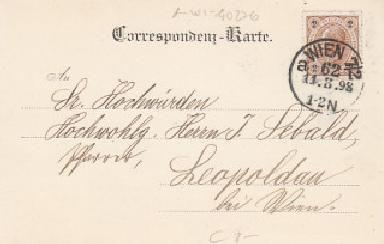 A-WI-40276
Correspondenz-Karte.
WIEN 7/2
62
11.8.98
1-2N
An
Sr. Hochwürden
Hochwohlg. Herrn J. Sebald,
Pfarrer,
Leopoldau
bei Wien.